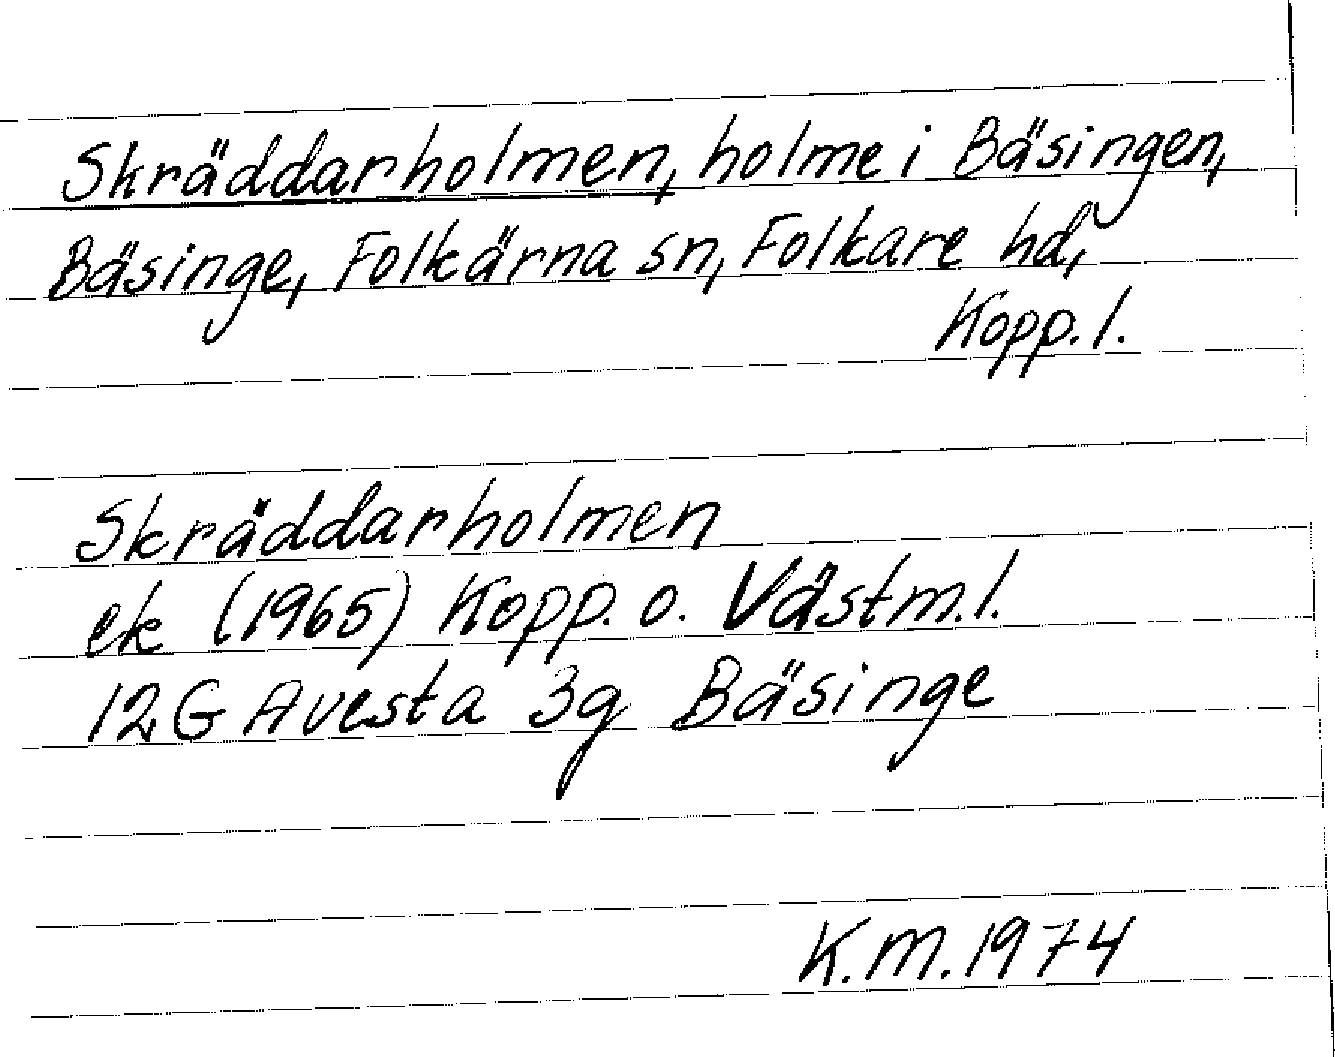 Skräddarholmen, holme i Bäsingen,
Bäsinge, Folkärna sn, Folkare hd,
Kopp. l.
Skräddarholmen
ek (1965) Kopp. o. Västm. l.
12 G Avesta 3g Bäsinge
K.M. 1974